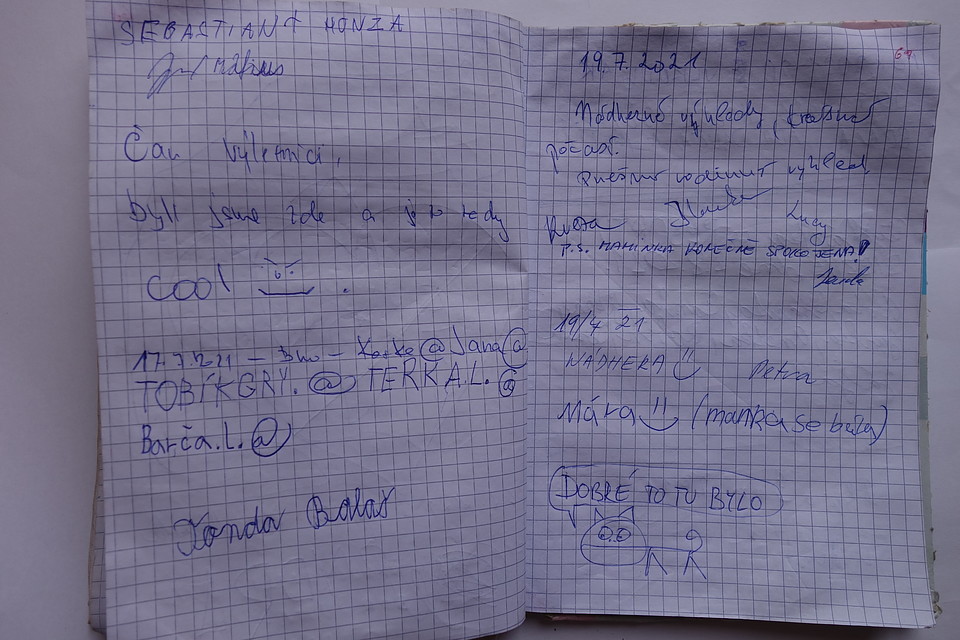 SEBASTIAN + HONZA
Čau výletníci,
byli jsme zde a je to tedy
cool
17.7.2021 - Brno - @ Jana @
TOBÍKGRY. @ TERKA.L. @
Barča.L. @
Tonda Balaš
69
19.7.2021
Nádherné výhledy, krásné
počasí.
výhled
Lucy
P.S. MAMINKA KONEČNĚ SPOKOJENA!
19/4 21
NÁDHERA Petra
Mára (mamka se bála)
DOBRÉ TO TU BYLO